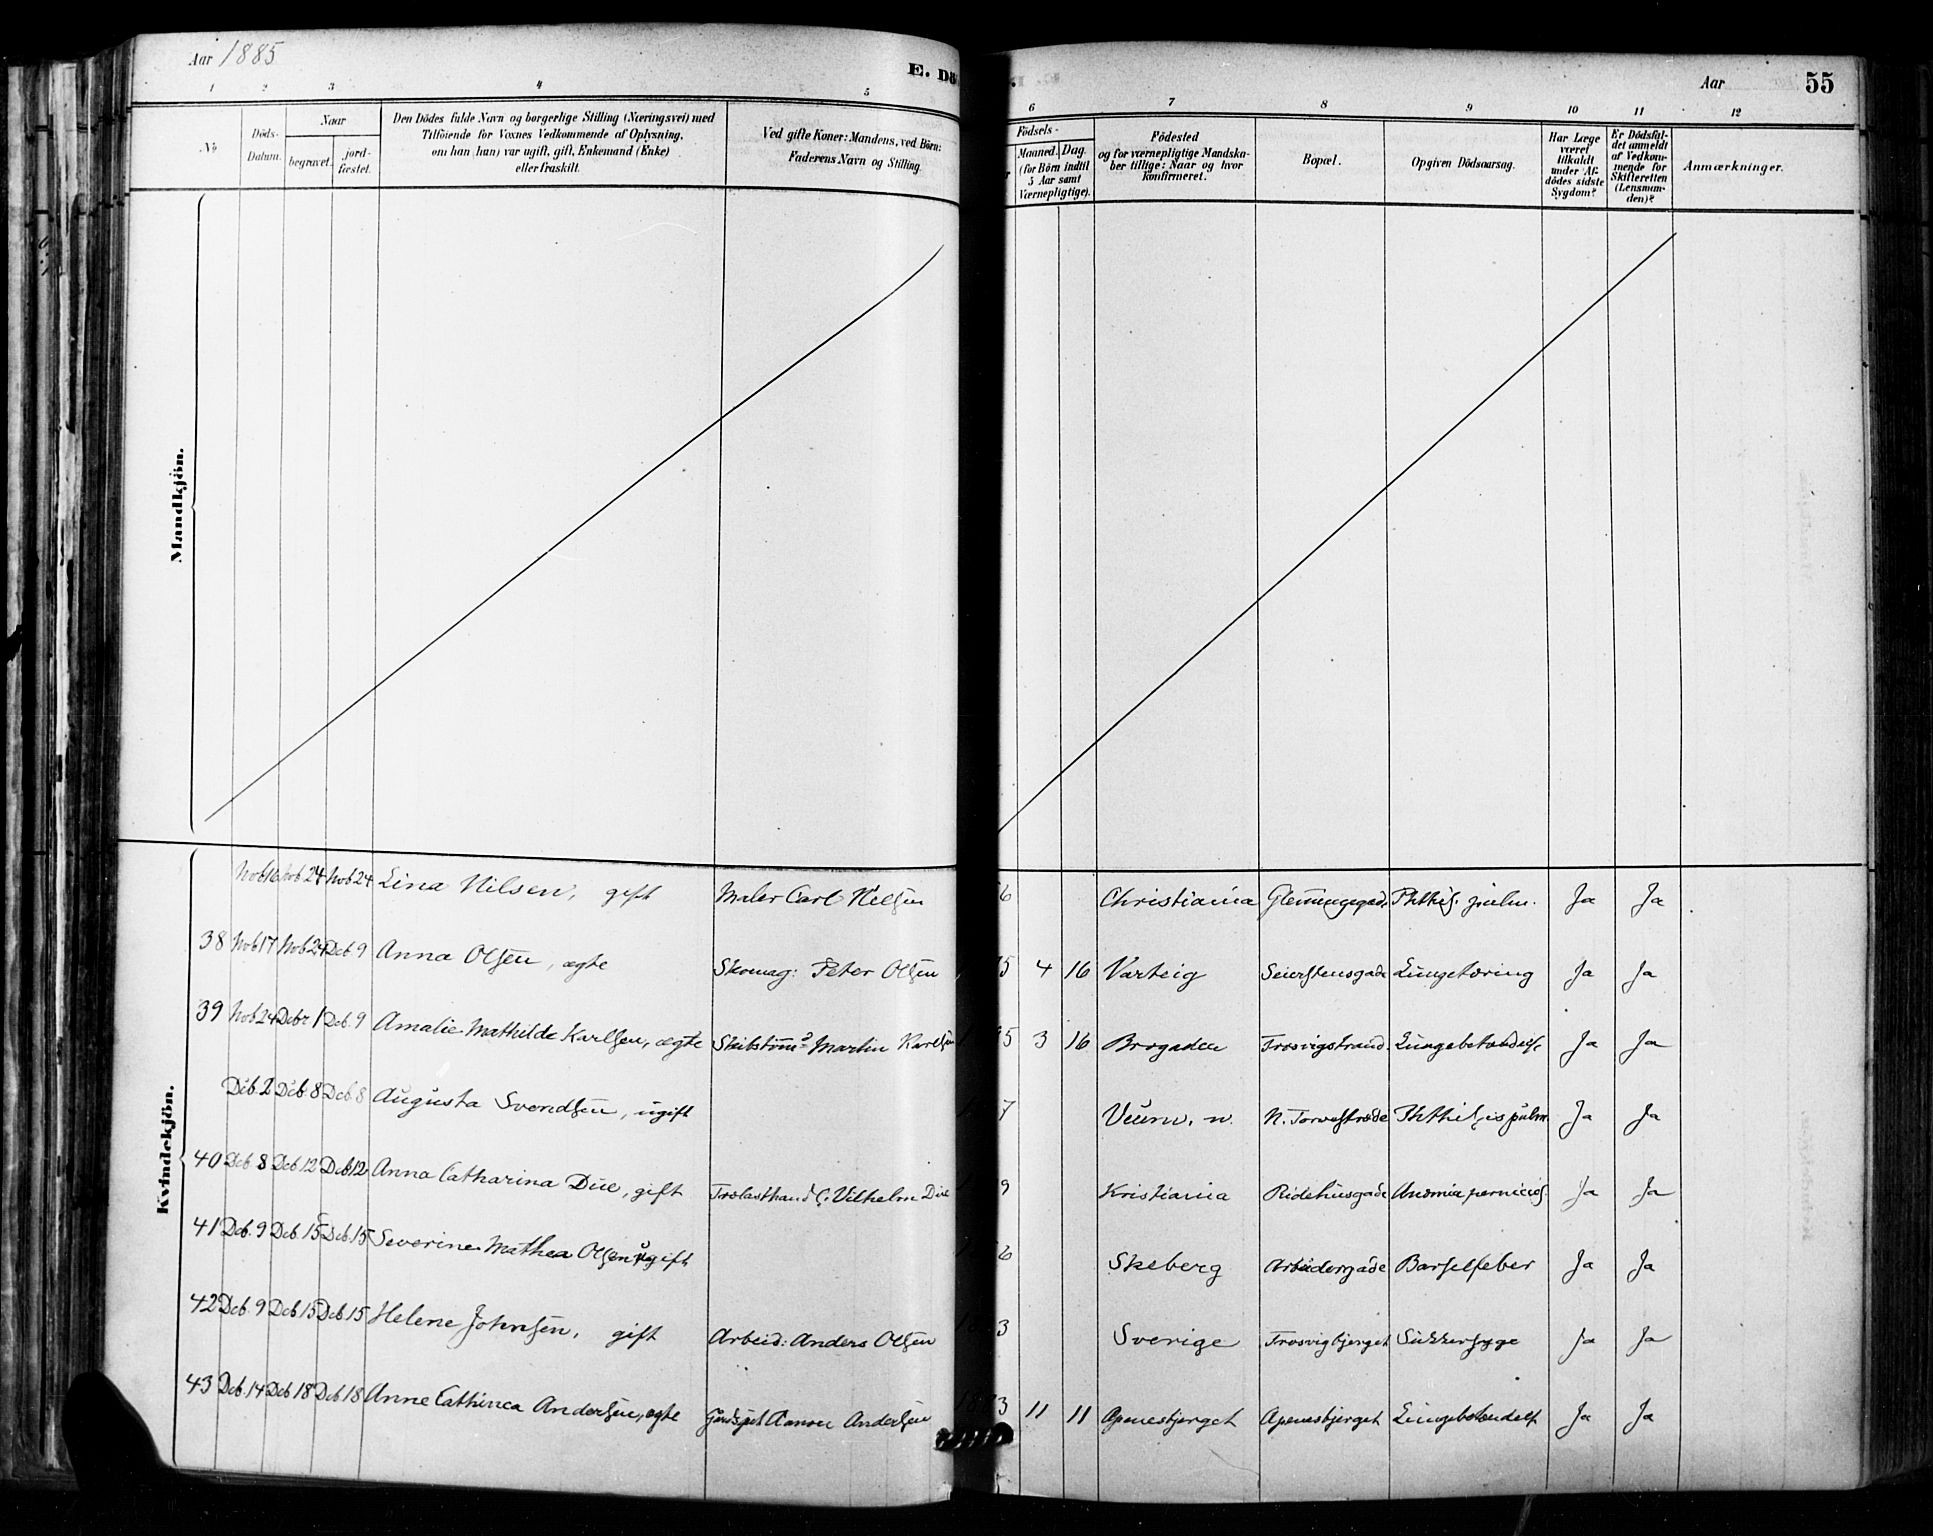 Aar 1885
E. Dö
Aar
55
1 2 3 4 5 6 7 8 9 10 11 12
No
Döds-
Datum.
Naar
begravet.
jord-
fæstet.
Den Dödes fulde Navn og borgerlige Stilling (Næringsvei) med
Tilföiende for Voxnes Vedkommende af Oplysning,
om han (hun) var ugift, gift, Enkemand (Enke)
eller fraskilt.
Ved gifte Koner: Mandens, ved Börn:
Faderens Navn og Stilling.
Födsels-
Maaned. Dag.
(for Börn indtil
5 Aar samt
Værnepligtige).
Födested
og for værnepligtige Mandska-
ber tillige: Naar og hvor
Konfirmeret.
Bopæl.
Opgiven Dödsaarsag.
Har Læge
været
tilkaldt
under Af-
dödes sidste
Sygdom?
Er Dödsfal-
det anmeldt
af Vedkom-
mende for
Skifteretten
(Lensman-
den)?
Anmærkninger.
Mandkjön.
Kvindekjön.
Nob 16 Nob 24 Nob 24 Lina Nilsen, gift Maler Carl Nielsen 6 Christiania Glemmengegade Phthis. pulm. Ja Ja
38 Nob 17 Nob 24 Deb. 9 Anna Olsen, ægte Skomag: Peter Olsen 5 4 16 Varteig Seierstensgade Lungetæring Ja Ja
39 Nob 24 Debr 1 Deb. 9 Amalie Mathilde Karlsen, ægte Martin Karlsen 5 3 16 Brogaden Trosvigstrand. Lungebetændelse Ja Ja
Deb. 2 Deb. 8 Deb. 8 Augusta Svendsen, ugift 7 Veum. N. Torvestræde Phthisis pulm. Ja Ja
40 Deb. 8 Deb 12 Deb 12 Anna Catharina Due, gift Trælasthand C. Vilhelm Due 9 Kristiania Ridehusgade Anæmia pernicios. Ja Ja
41 Deb. 9 Deb. 15 Deb. 15 Severine Mathea Olsen ugift 6 Skeberg Arbeidergade Barselfeber Ja Ja
42 Deb. 9 Deb 15 Deb 15 Helene Johnsen, gift Arbeid: Anders Olsen 3 Sverige Trosvigbjerget Sukkersyge Ja Ja
43 Deb. 14 Deb 18 Deb 18 Anne Cathinca Andersen, ægte Andersen 3 11 11 Apenesbjerget Apenesbjerget Lungebetændelse Ja Ja